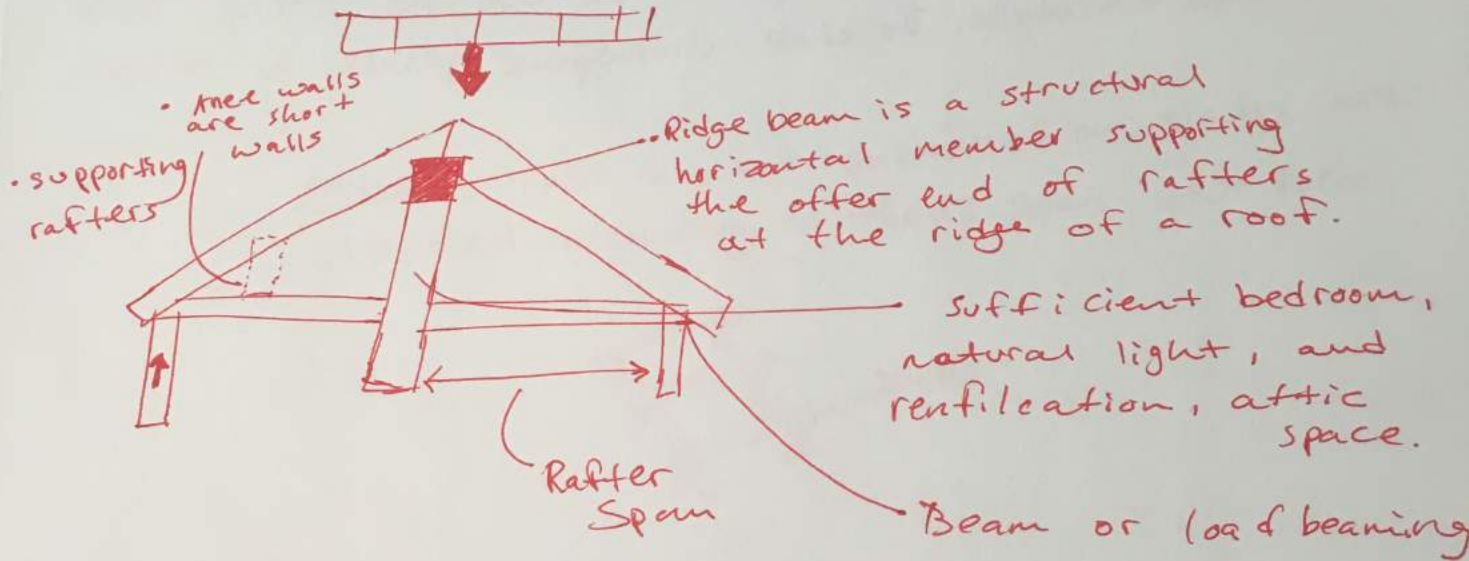 • knee walls
are short
walls
• supporting
rafters
• Ridge beam is a structural
horizontal member supporting
the offer end of rafters
at the ridge of a roof.
sufficient bedroom,
natural light, and
renfilcation, attic
space.
Rafter
Span
Beam or load beaming